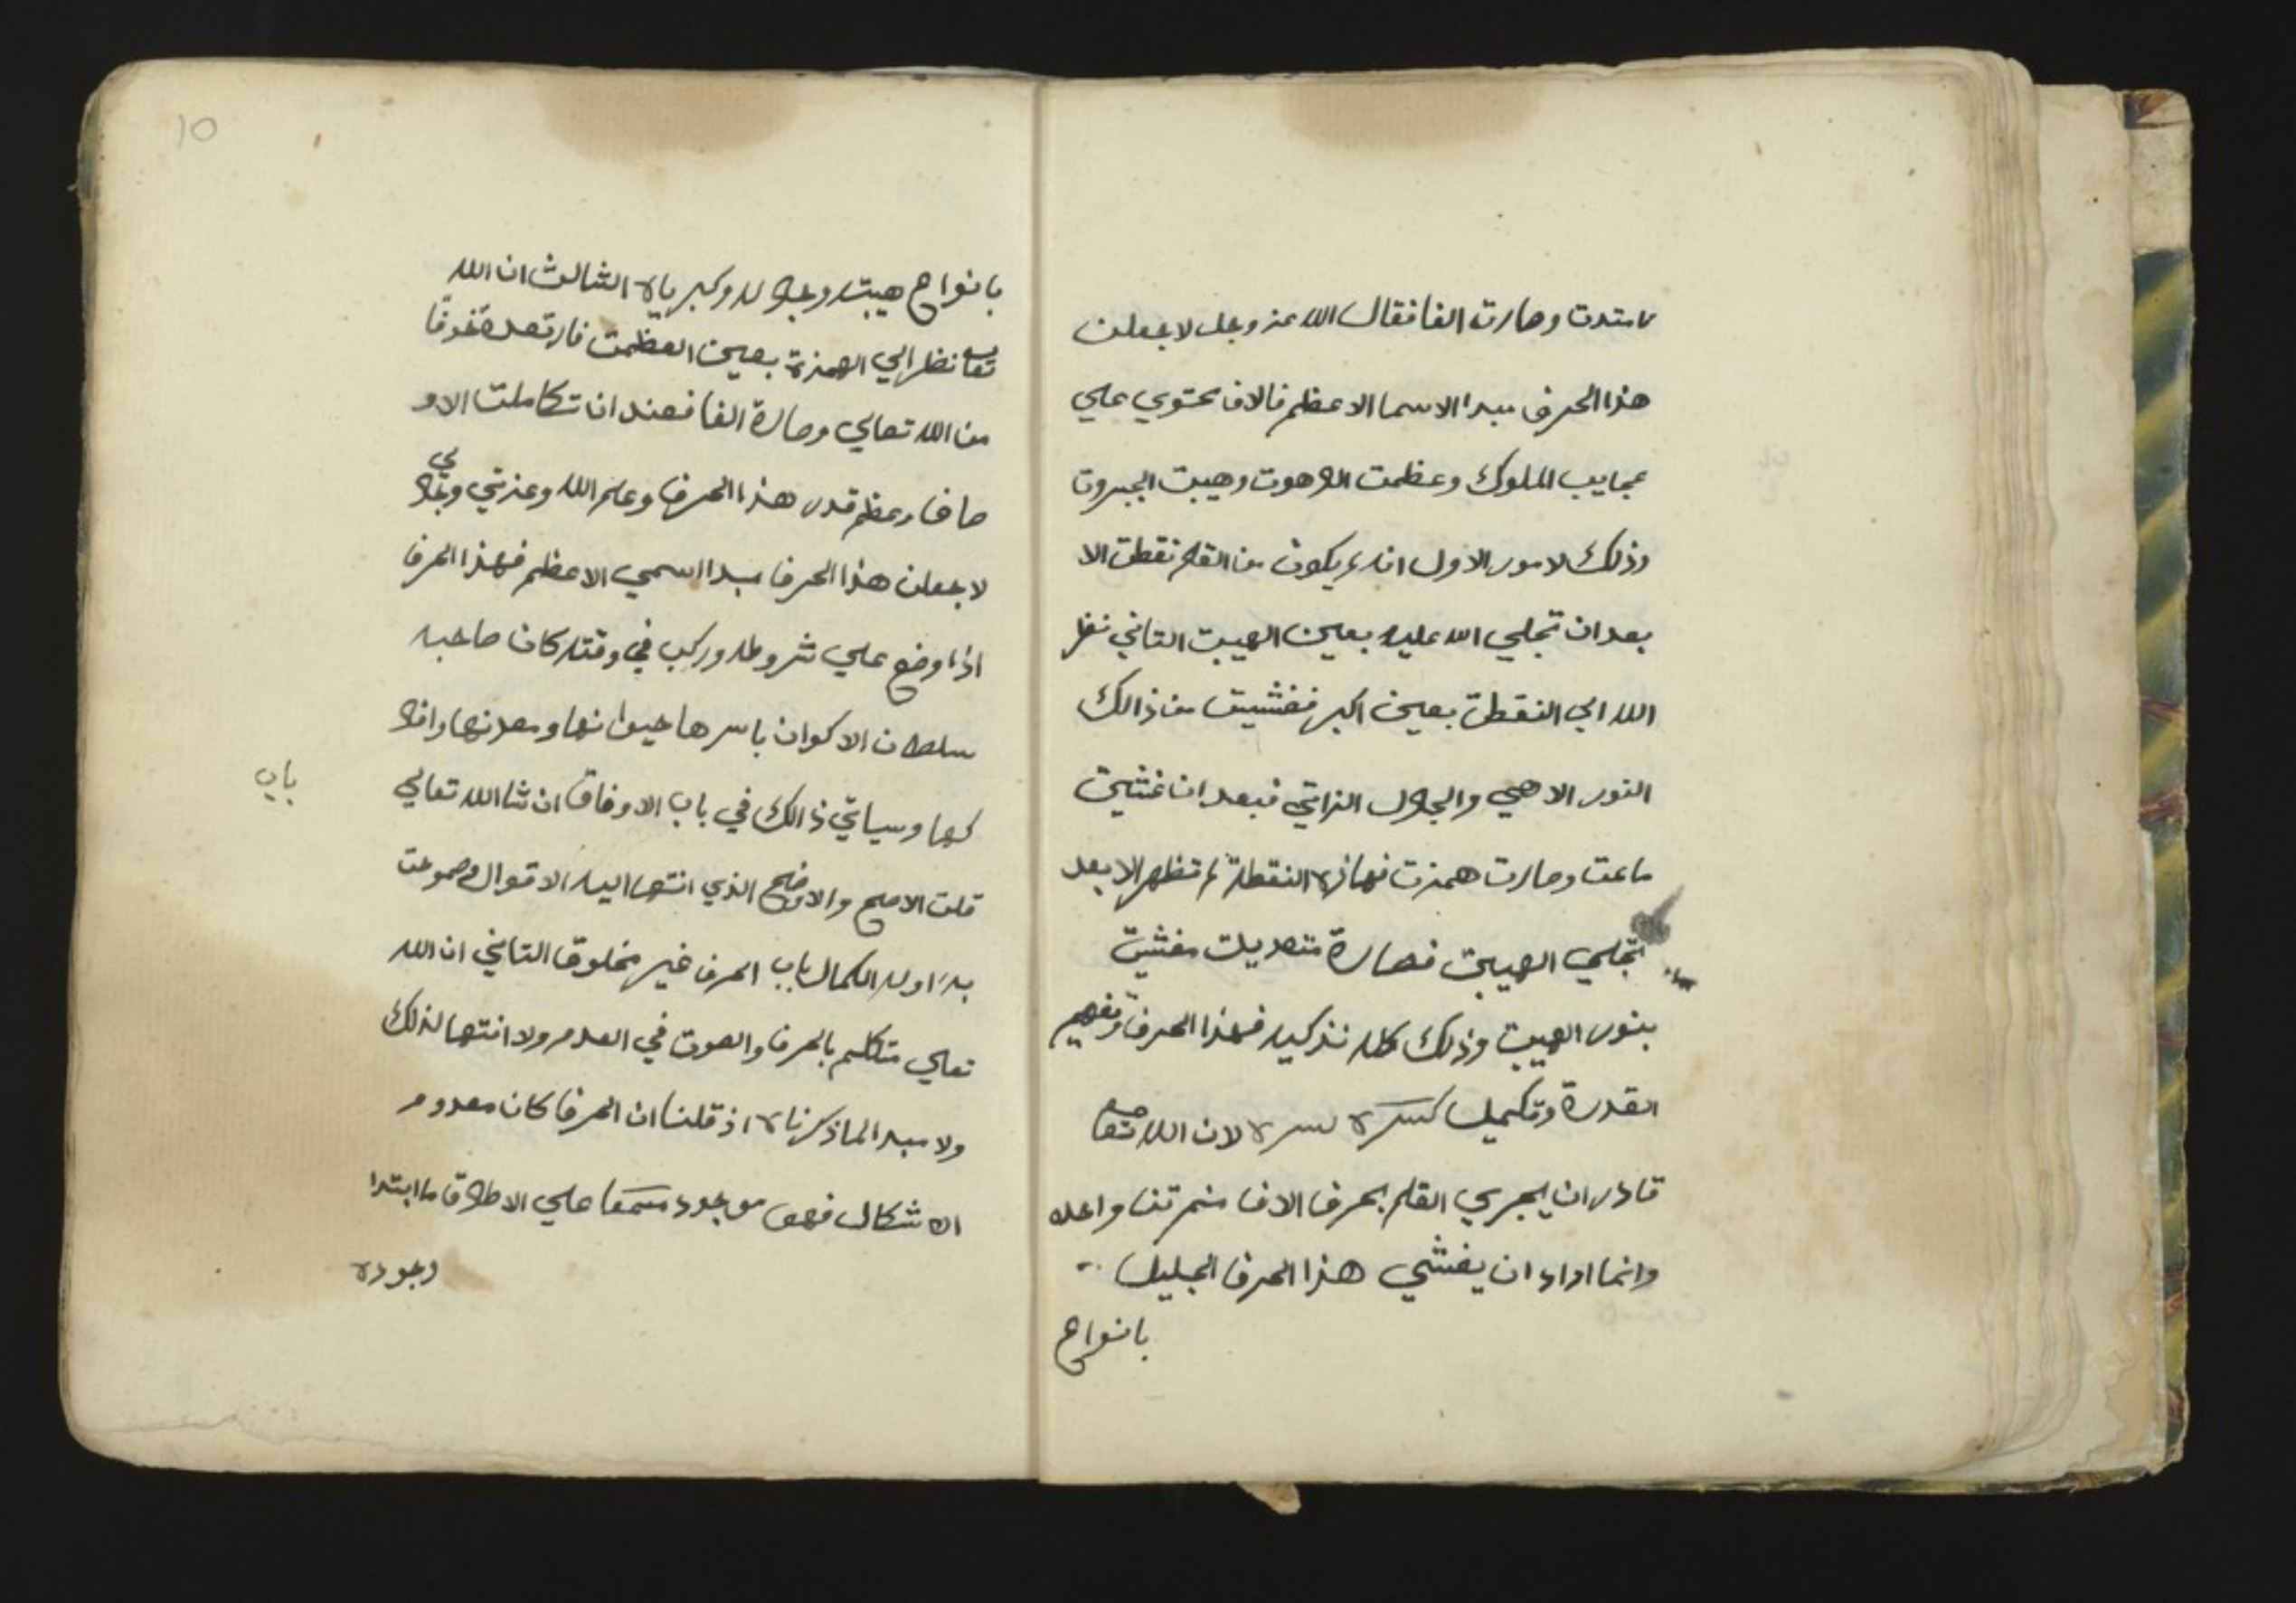 فامتدت وصارت الفا فقال الله عز وجل لاجعلن
هذا الحرف مبدا الاسما الاعظم فالالف يحتوي علي
عجايب الملوك وعظمت اللاهوت وهيبت الجبروت
وذلك لامور الاول انه يكون من القلم نقطت الا
بعد ان تجلي الله عليه بعين الهيبت التاني نظر
الله الي النقطت بعين اكبر فغشيت من ذالك
النور الالاهي والجلال الذاتي فبعد ان غشيت
ماعت وصارت همزت فهاذه النقطة لم تظهر الا بعد
تجلي الهيبت فصارة متعديلت مغشيت
بنور الهيبت وذلك كله تذكيد فهذا الحرف وتفهيم
القدرة وتكميل لسره لان الله تعا
قادر ان يجري القلم بحرف الالف منمرتنا واعده
وانما اراد ان يغشي هذا الحرف الجليل
بانواع
10
بانواع هيبته وجلاله وكبريايه الثالث ان الله
تعا نظر الي الهمزة بعين العظمت فارتعدة خوفا
من الله تعالي وصارة الفا فعند ان تكاملت الاو
صاف وعظم قدر هذا الحرف وعلم الله وعزتي وجلالي
لاجعلن هذا الحرف مبدا اسمي الاعظم فهذا الحرف
اذا وضع علي شروطه وركب في وقته كان صاحبه
سلطان الاكوان باسرها حيوانها ومعدنها وافلا
كها وسياتي ذالك في باب الاوفاق ان شا الله تعالي
باب
قلت الاصح والاوضح الذي انتها اليه الاقوال
بد اوله الكمال باب الحرف غير مخلوق التاني ان الله
تعالي متكلم بالحرف والصوت في العدم ولا انتها لذلك
ولا مبدا لما ذكرناه اذ قلنا ان الحرف كان معدوم
الاشكال فهو موجود علي الاطلاق ما ابتدا
وجوده